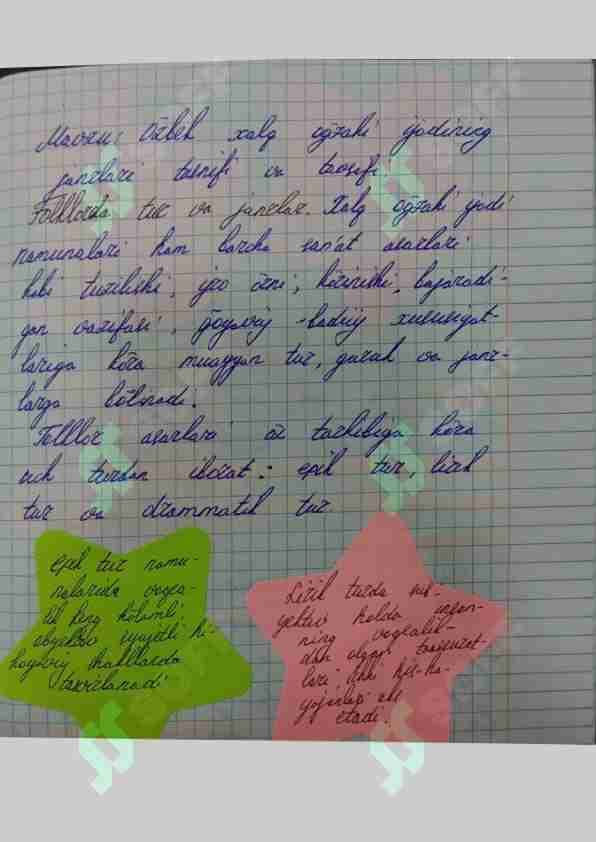 Mavzu: Oʻzbek xalq ogʻzaki ijodining
janrlari tasnifi va tavsifi.
Folklorda tur va janrlar. Xalq ogʻzaki ijodi
namunalari ham barcha sanʼat asarlari
kabi tuzilishi, ijro oʻrni, koʻrinishi, bajaradi-
gan vazifasi, gʻoyaviy-badiiy xususiyat-
lariga koʻra muayyan tur, guruh va janr-
larga boʻlinadi.
Folklor asarlari oʻz tarkibiga koʻra
uch turdan iborat: epik tur, lirik
tur va drammatik tur.
Epik tur namu-
nalarida voqea-
lik keng koʻlamli
obyektiv syujetli hi-
koyaviy shakllarda
tasvirlanadi
Lirik turda sub-
yektiv holda inson-
ning voqealik-
dan olgan taassurot-
lari ichki his-ha-
yajonlari aks
etadi.